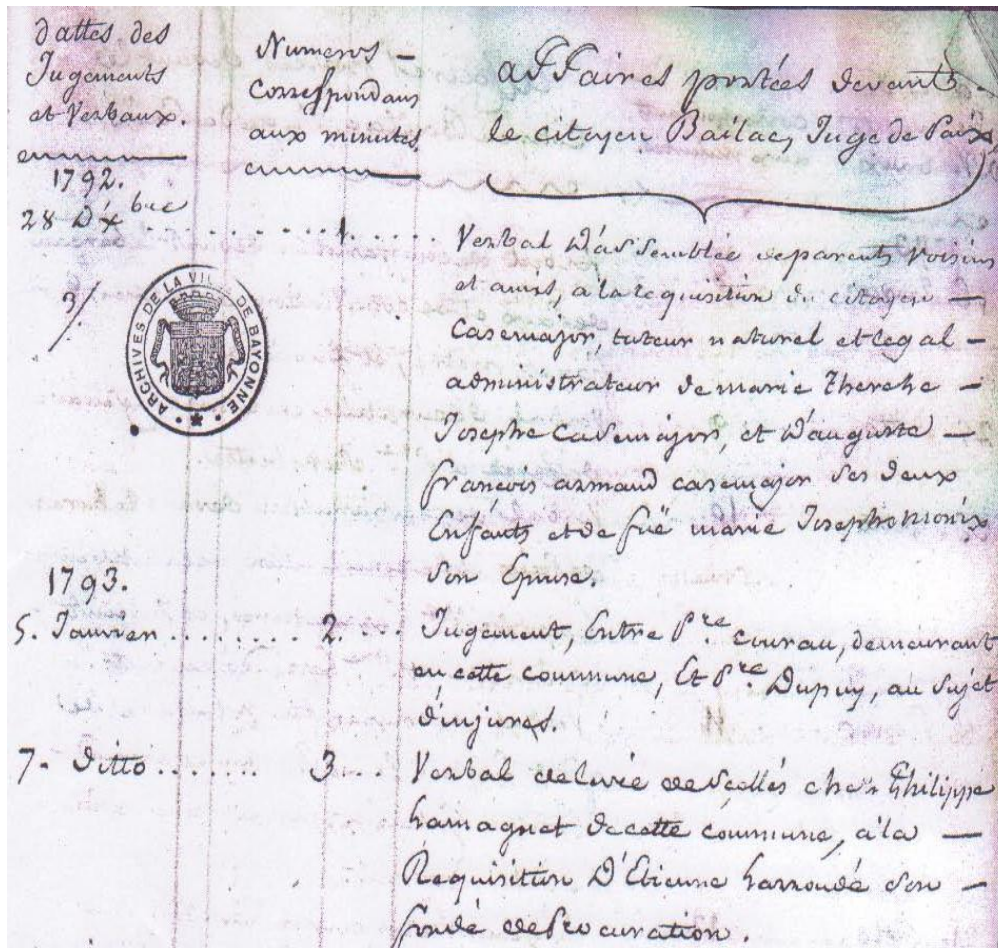 dattes des
Jugements
et Verbaux.
Numeros —
Correspondans
aux minutes
affaires portées devant
le citoyen Bailac, Juge de Paix
1792.
28 Dixbre ........ 1. ....
Verbal d'assemblée de parents voisins
et amis, a la requisition du citoyen —
Casemajor, tuteur naturel et legal —
administrateur de marie Therehe —
Josephe Casemajor, et d'auguste —
françois armand casemajor ses deux
Enfants et de füe marie Josephe
son Epouse.
3/
ARCHIVES DE LA VILLE DE BAYONNE
1793.
5. Janvier ........ 2. ...
Jugement, Entre Pre. courau, demeurant
en cette commune, Et Pre. Dupuy, au sujet
d'injures.
7. ditto ....... 3 ...
Verbal de levée de Scellés chez Philippe
de cette commune, a la —
Requisition D'Etienne son —
fondé de Procuration.